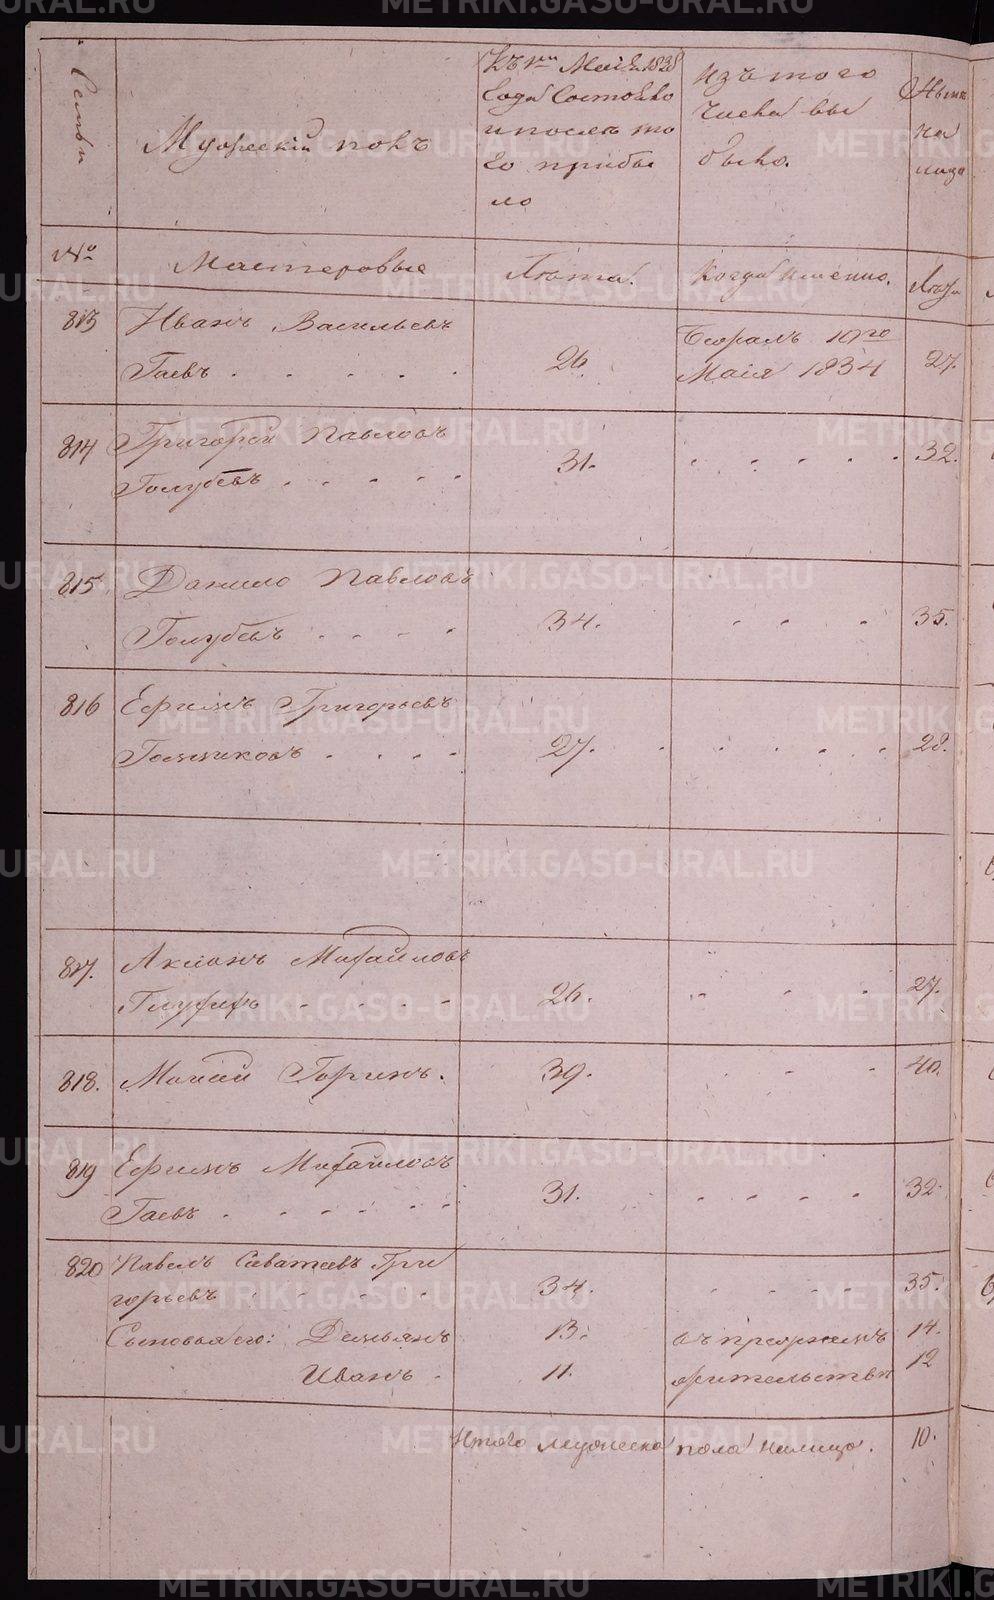 Семьи
Мужескій полъ
Къ 1му Маія 1833
года Состояло
и послѣ то
го прибы
ло
Изъ того
числа вы
было.
Нынѣ
на
лицо
№
Мастеровые
Лѣта.
Когда именно.
Лѣта
813
Иванъ Васильевъ
Гаевъ
26
10го
Маія 1834
27.
814
Григорей Павловъ
Голубевъ
31.
32.
815
Данило Павловъ
Голубевъ
34.
35.
816
Ефимъ Григорьевъ
27.
28.
817.
Михайловъ
26.
27.
818.
Горинъ.
39.
40.
819
Ефимъ Михайловъ
Гаевъ
31.
32.
820
Павелъ Саватеевъ Гри
горьевъ
34.
35.
Сыновья его: Демьянъ
13.
въ прежнемъ
14.
Иванъ
11.
жительствѣ
12
Итого мужеска пола налицо.
10.
METRIKI.GASO-URAL.RU